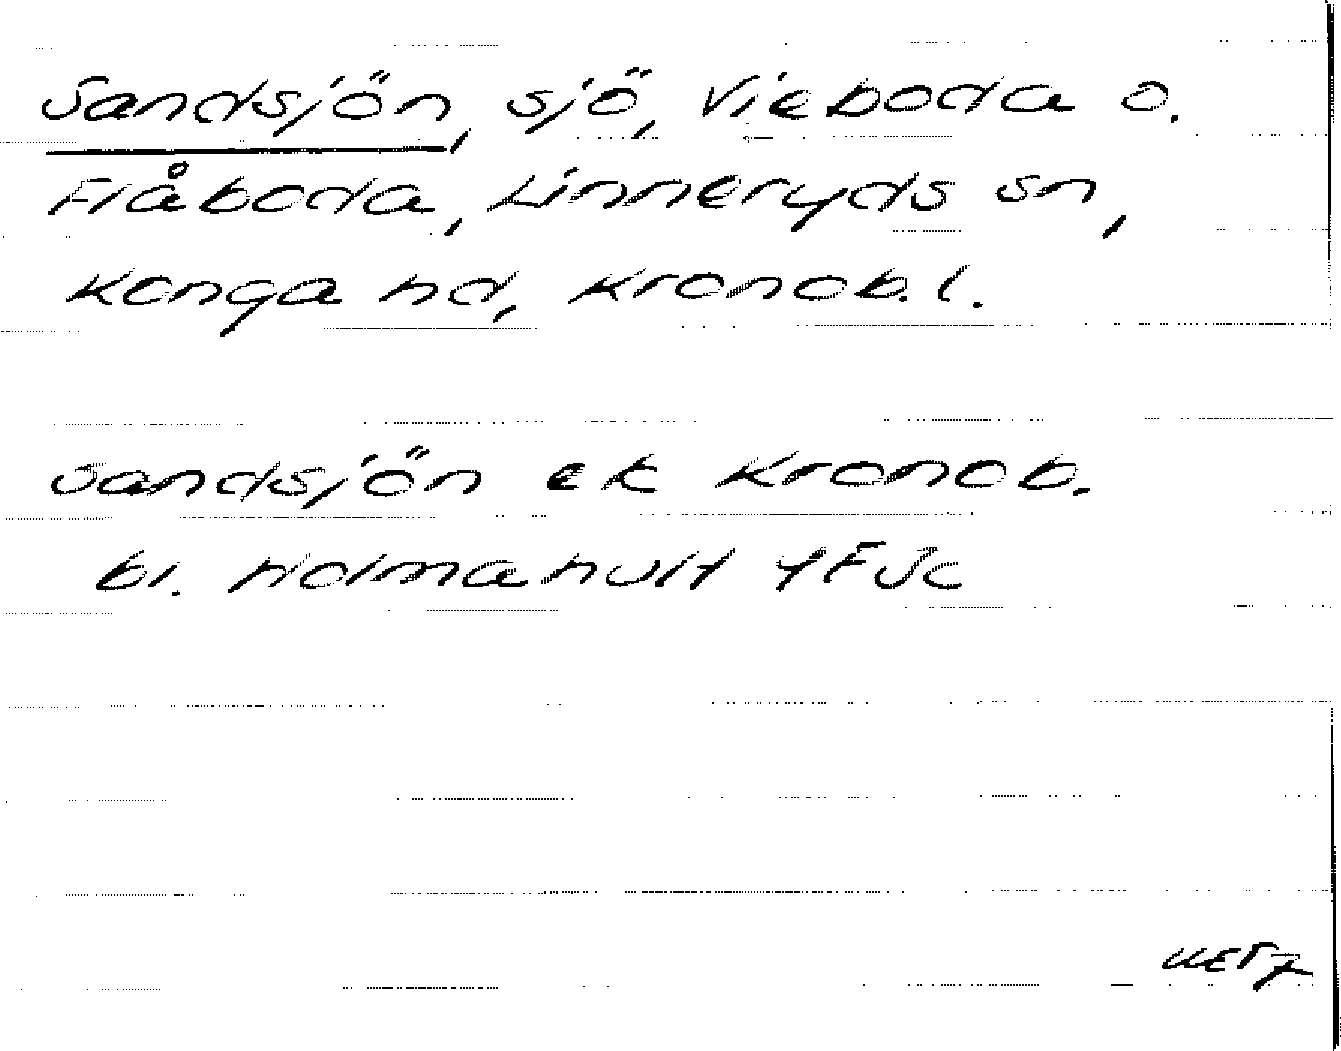 Sandsjön, sjö, Vieboda o.
Flåboda, Linneryds sn,
Konga hd, Kronob. l.
Sandsjön ek Kronob.
bl. Holmahult 4F5c